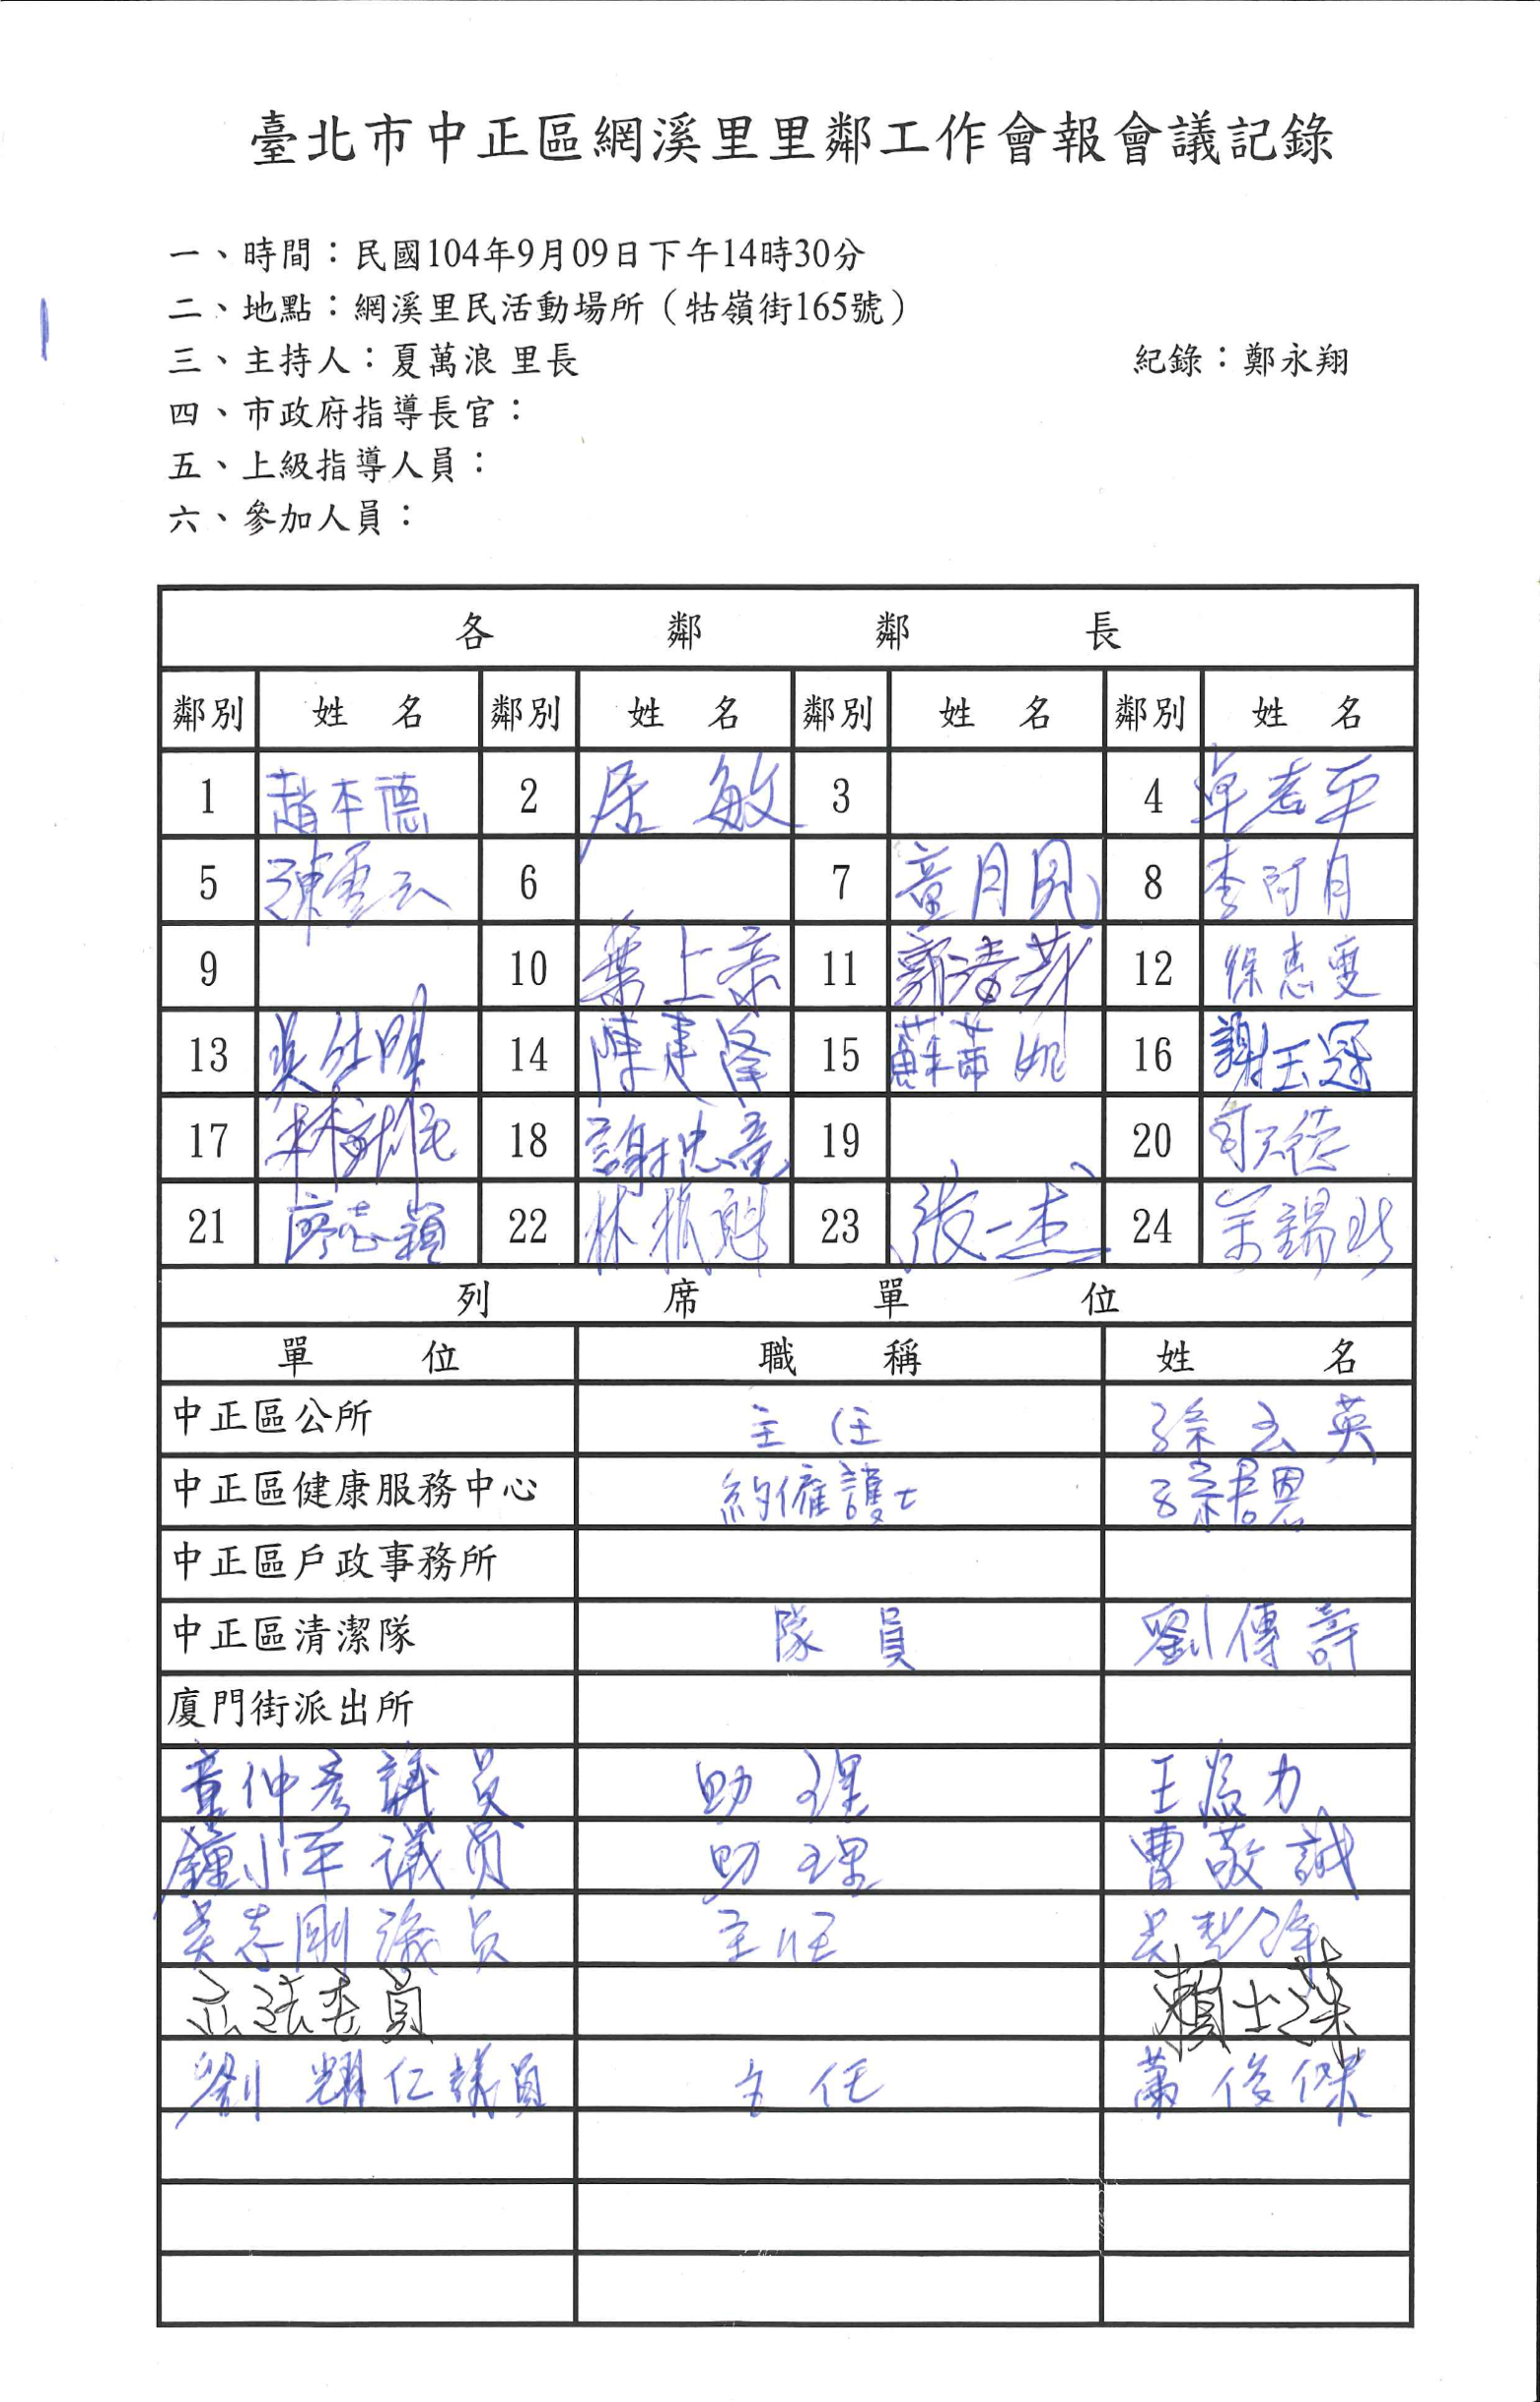 臺北市中正區網溪里里鄰工作會報會議記錄
一、時間：民國104年9月09日下午14時30分
二、地點：網溪里民活動場所（牯嶺街165號）
三、主持人：夏萬浪 里長 紀錄：鄭永翔
四、市政府指導長官：
五、上級指導人員：
六、參加人員：
各鄰鄰長
鄰別 姓名 鄰別 姓名 鄰別 姓名 鄰別 姓名
1 趙本德 2 居敏 3 4 卓孝平
5 陳雲 6 7 童月 8 李阿月
9 10 葉上 11 郭春 12 徐惠雯
13 吳 明 14 陳建隆 15 蘇 妮 16 謝玉冠
17 林 18 謝忠 19 20 德
21 廖志穎 22 林 魁 23 張一杰 24 錫
列席單位
單位 職稱 姓名
中正區公所 主任 孫玉英
中正區健康服務中心 約僱護士 孫君恩
中正區戶政事務所
中正區清潔隊 隊員 劉傳壽
廈門街派出所
童仲彥議員 助理 王 力
鍾小平議員 助理 曹敬誠
吳志剛議員 主任 吳
立法委員 賴士葆
劉耀仁議員 主任 蕭俊傑